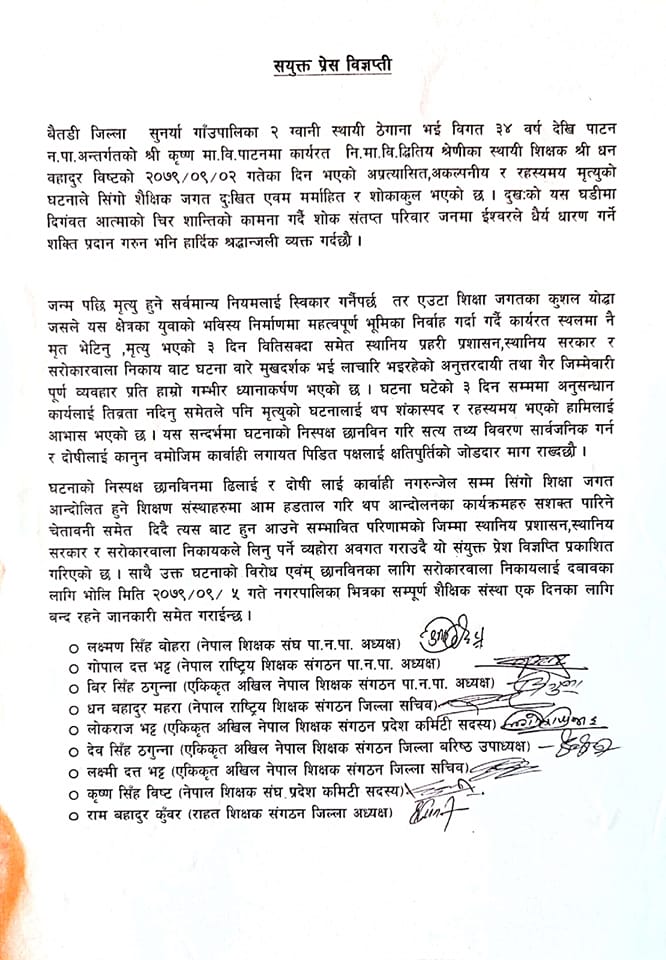 सयुक्त प्रेस विज्ञप्ती
बैतडी जिल्ला सुनर्या गाँउपालिका २ ग्वानी स्थायी ठेगाना भई विगत ३४ वर्ष देखि पाटन
न.पा.अन्तर्गतको श्री कृष्ण मा.वि.पाटनमा कार्यरत नि.मा.वि.द्धितिय श्रेणीका स्थायी शिक्षक श्री धन
वहादुर विष्टको २०७९/०९/०२ गतेका दिन भएको अप्रत्यासित,अकल्पनीय र रहस्यमय मृत्युको
घटनाले सिंगो शैक्षिक जगत दु:खित एवम मर्माहित र शोकाकुल भएको छ । दुख:को यस घडीमा
दिगंवत आत्माको चिर शान्तिको कामना गर्दै शोक संतप्त परिवार जनमा ईश्वरले धैर्य धारण गर्ने
शक्ति प्रदान गरुन भनि हार्दिक श्रद्धान्जली व्यक्त गर्दछौ ।
जन्म पछि मृत्यु हुने सर्वमान्य नियमलाई स्विकार गर्नैपर्छ तर एउटा शिक्षा जगतका कुशल योद्धा
जसले यस क्षेत्रका युवाको भविस्य निर्माणमा महत्वपूर्ण भूमिका निर्वाह गर्दा गर्दै कार्यरत स्थलमा नै
मृत भेटिनु ,मृत्यु भएको ३ दिन वितिसक्दा समेत स्थानिय प्रहरी प्रशासन,स्थानिय सरकार र
सरोकारवाला निकाय बाट घटना वारे मुखदर्शक भई लाचारि भइरहेको अनुत्तरदायी तथा गैर जिम्मेवारी
पूर्ण व्यवहार प्रति हाम्रो गम्भीर ध्यानाकर्षण भएको छ । घटना घटेको ३ दिन सम्ममा अनुसन्धान
कार्यलाई तिव्रता नदिनु समेतले पनि मृत्युको घटनालाई थप शंकास्पद र रहस्यमय भएको हामिलाई
आभास भएको छ । यस सन्दर्भमा घटनाको निस्पक्ष छानविन गरि सत्य तथ्य विवरण सार्वजनिक गर्न
र दोषीलाई कानुन वमोजिम कार्वाही लगायत पिडित पक्षलाई क्षतिपुर्तिको जोडदार माग राख्दछौ ।
घटनाको निस्पक्ष छानविनमा ढिलाई र दोषी लाई कार्वाही नगरुन्जेल सम्म सिंगो शिक्षा जगत
आन्दोलित हुने शिक्षण संस्थाहरुमा आम हडताल गरि थप आन्दोलनका कार्यक्रमहरु सशक्त पारिने
चेतावनी समेत दिदै त्यस बाट हुन आउने सम्भावित परिणामको जिम्मा स्थानिय प्रशासन,स्थानिय
सरकार र सरोकारवाला निकायकले लिनु पर्ने व्यहोरा अवगत गराउदै यो संयुक्त प्रेश विज्ञप्ति प्रकाशित
गरिएको छ । साथै उक्त घटनाको विरोध एवंम् छानविनका लागि सरोकारवाला निकायलाई दवावका
लागि भोलि मिति २०७९/०९/ ५ गते नगरपालिका भित्रका सम्पूर्ण शैक्षिक संस्था एक दिनका लागि
बन्द रहने जानकारी समेत गराईन्छ ।
लक्ष्मण सिँह बोहरा (नेपाल शिक्षक संघ पा.न.पा. अध्यक्ष)
गोपाल दत्त भट्ट (नेपाल राष्ट्रिय शिक्षक संगठन पा.न.पा. अध्यक्ष)
विर सिंह ठगुन्ना (एकिकृत अखिल नेपाल शिक्षक संगठन पा.न.पा. अध्यक्ष)
धन बहादुर महरा (नेपाल राष्ट्रिय शिक्षक संगठन जिल्ला सचिव)
लोकराज भट्ट (एकिकृत अखिल नेपाल शिक्षक संगठन प्रदेश कमिटी सदस्य)
देव सिँह ठगुन्ना (एकिकृत अखिल नेपाल शिक्षक संगठन जिल्ला बरिष्ठ उपाध्यक्ष)
लक्ष्मी दत्त भट्ट (एकिकृत अखिल नेपाल शिक्षक संगठन जिल्ला सचिव)
कृष्ण सिँह विष्ट (नेपाल शिक्षक संघ प्रदेश कमिटी सदस्य)
राम बहादुर कुँवर (राहत शिक्षक संगठन जिल्ला अध्यक्ष)